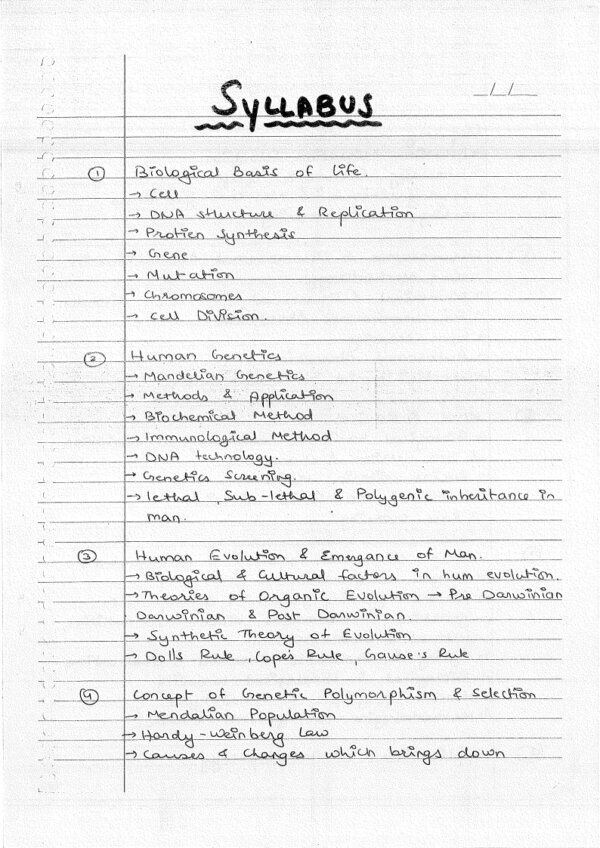 __/__/__
SYLLABUS
① Biological Basis of life.
→ Cell
→ DNA structure & Replication
→ Protien Synthesis
→ Gene
→ Mutation
→ Chromosomes
→ Cell Division.
② Human Genetics
→ Mandelian Genetics
→ Methods & Application
→ Biochemical Method
→ Immunological Method
→ DNA technology.
→ Genetics Screening.
→ lethal, Sub-lethal & Polygenic inheritance in
man.
③ Human Evolution & Emergance of Man.
→ Biological & Cultural factors in hum evolution.
→ Theories of Organic Evolution → Pre Darwinian
Darwinian & Post Darwinian.
→ Synthetic Theory of Evolution
→ Dolls Rule, Cope's Rule, Gause's Rule
④ Concept of Genetic Polymorphism & Selection
→ Mendalian Population
→ Hardy-Weinberg Law
→ Causes & Changes which brings down